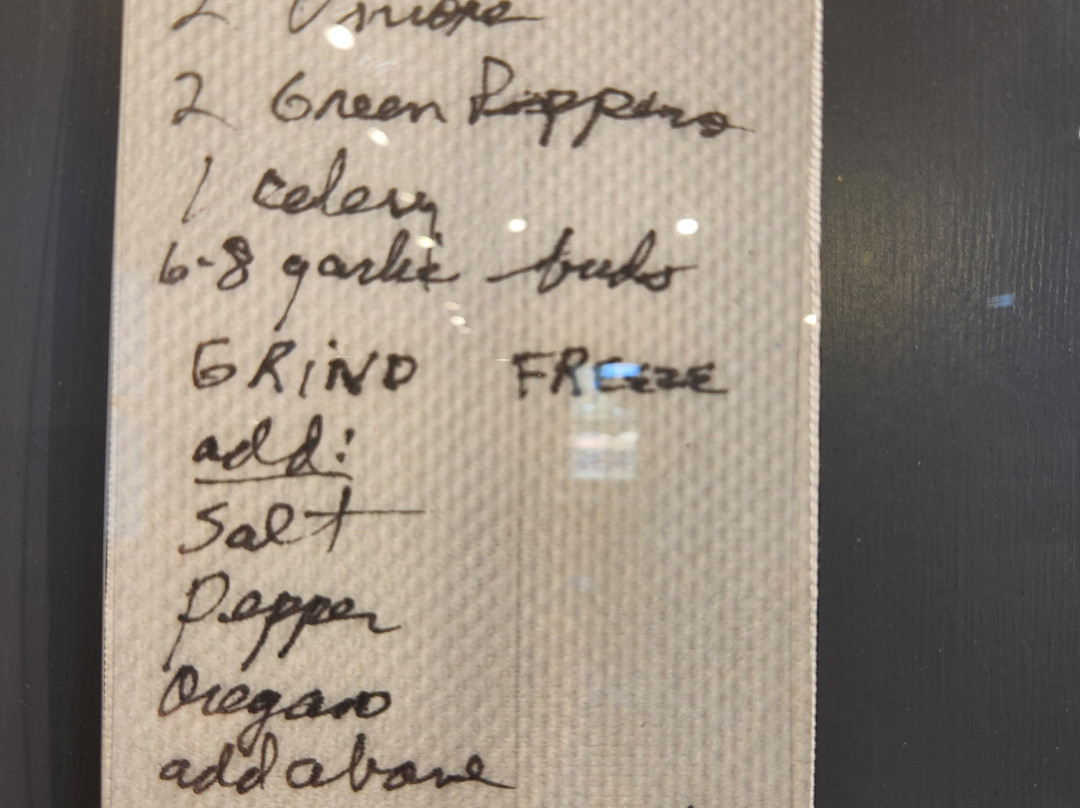 2 Onions
2 Green Peppers
1 celery
6-8 garlic buds
GRIND FREEZE
add:
Salt
Pepper
Oregano
add above